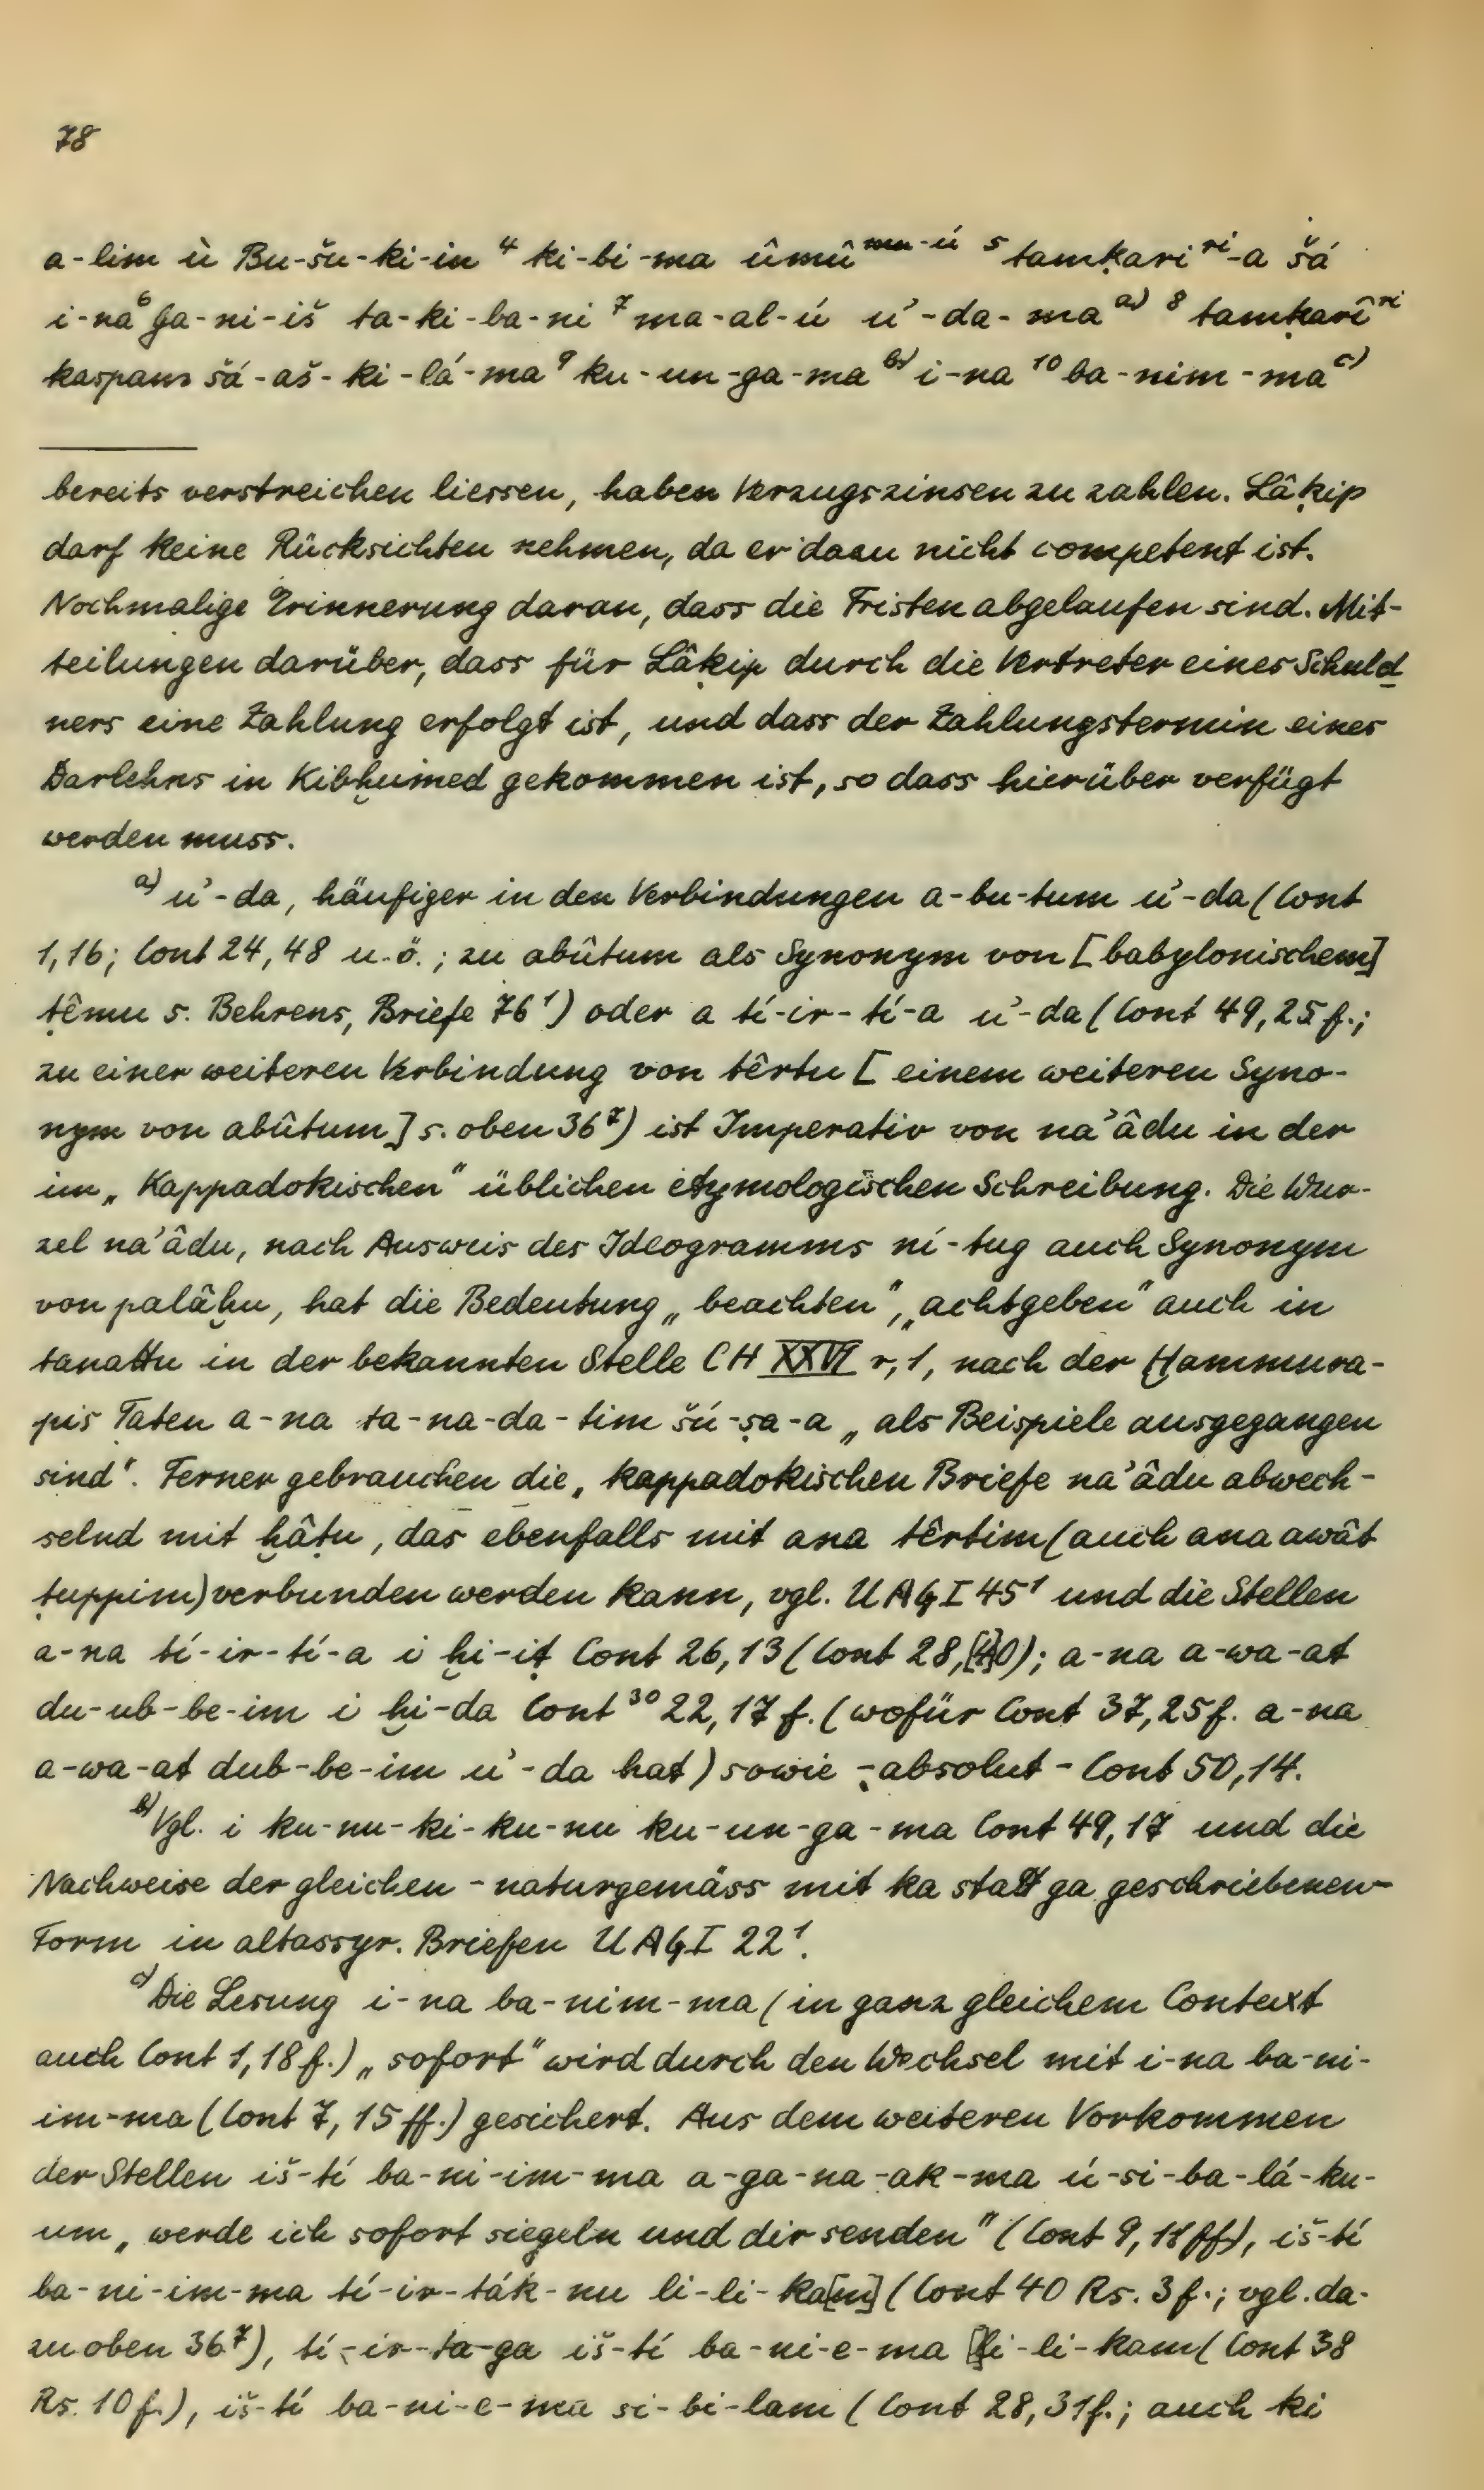 78
a-lim ù Bu-šu-ki-in ⁴ ki-bi-ma ûmû ᵐᵘ⁻ᵘ́ ⁵ tamḳari ʳⁱ-a šá
i-na ⁶ ga-ni-iš ta-ki-ba-ni ⁷ ma-al-ú u'-da-ma ᵃ⁾ ⁸ tamḳarî ʳⁱ
kaspam šá-aš-ki-lá-ma ⁹ ku-un-ga-ma ᵇ⁾ i-na ¹⁰ ba-nim-ma ᶜ⁾
bereits verstreichen liessen, haben Verzugszinsen zu zahlen. Lâḳip
darf keine Rücksichten nehmen, da er dazu nicht competent ist.
Nochmalige Erinnerung daran, dass die Fristen abgelaufen sind. Mit-
teilungen darüber, dass für Lâḳip durch die Vertreter eines Schuld
ners eine Zahlung erfolgt ist, und dass der Zahlungstermin eines
Darlehns in Kibḫumed gekommen ist, so dass hierüber verfügt
werden muss.
ᵃ⁾ u'-da, häufiger in den Verbindungen a-bu-tum u'-da (Cont
1,16; Cont 24,48 u.ö.; zu abûtum als Synonym von [babylonischem]
ṭêmu s. Behrens, Briefe 76¹) oder a tí-ir-tí-a u'-da (Cont 49,25f.;
zu einer weiteren Verbindung von têrtu [einem weiteren Syno-
nym von abûtum] s. oben 36⁷) ist Imperativ von na'âdu in der
im „Kappadokischen" üblichen etymologischen Schreibung. Die Wur-
zel na'âdu, nach Ausweis des Ideogramms ní-tug auch Synonym
von palâḫu, hat die Bedeutung „beachten", „achtgeben" auch in
tanattu in der bekannten Stelle CH XXVI r,1, nach der Ḫammura-
pis Taten a-na ta-na-da-tim šú-ṣa-a „als Beispiele ausgegangen
sind". Ferner gebrauchen die „kappadokischen Briefe na'âdu abwech-
selnd mit ḫâṭu, das ebenfalls mit ana têrtim (auch ana awât
ṭuppim) verbunden werden kann, vgl. UAGI 45¹ und die Stellen
a-na tí-ir-tí-a i ḫi-iṭ Cont 26,13 (Cont 28,[4]0); a-na a-wa-at
du-ub-be-im i ḫi-da Cont ³⁰ 22,17f. (wofür Cont 37,25f. a-na
a-wa-at dub-be-im u'-da hat) sowie - absolut - Cont 50,14.
ᵇ⁾ Vgl. i ku-nu-ki-ku-nu ku-un-ga-ma Cont 49,17 und die
Nachweise der gleichen - naturgemäss mit ka statt ga geschriebenen-
Form in altassyr. Briefen UAGI 22¹.
ᶜ⁾ Die Lesung i-na ba-nim-ma (in ganz gleichem Context
auch Cont 1,18f.) „sofort" wird durch den Wechsel mit i-na ba-ni-
im-ma (Cont 7, 15ff.) gesichert. Aus dem weiteren Vorkommen
der Stellen iš-tí ba-ni-im-ma a-ga-na-ak-ma ú-si-ba-lá-ku-
um „werde ich sofort siegeln und dir senden" (Cont 9, 18ff), iš-tí
ba-ni-im-ma tí-ir-ták-nu li-li-ka[m] (Cont 40 Rs. 3f.; vgl. da-
zu oben 36⁷), tí-ir-ta-ga iš-tí ba-ni-e-ma li-li-kam (Cont 38
Rs. 10f.), iš-tí ba-ni-e-ma si-bi-lam (Cont 28,31f.; auch ki